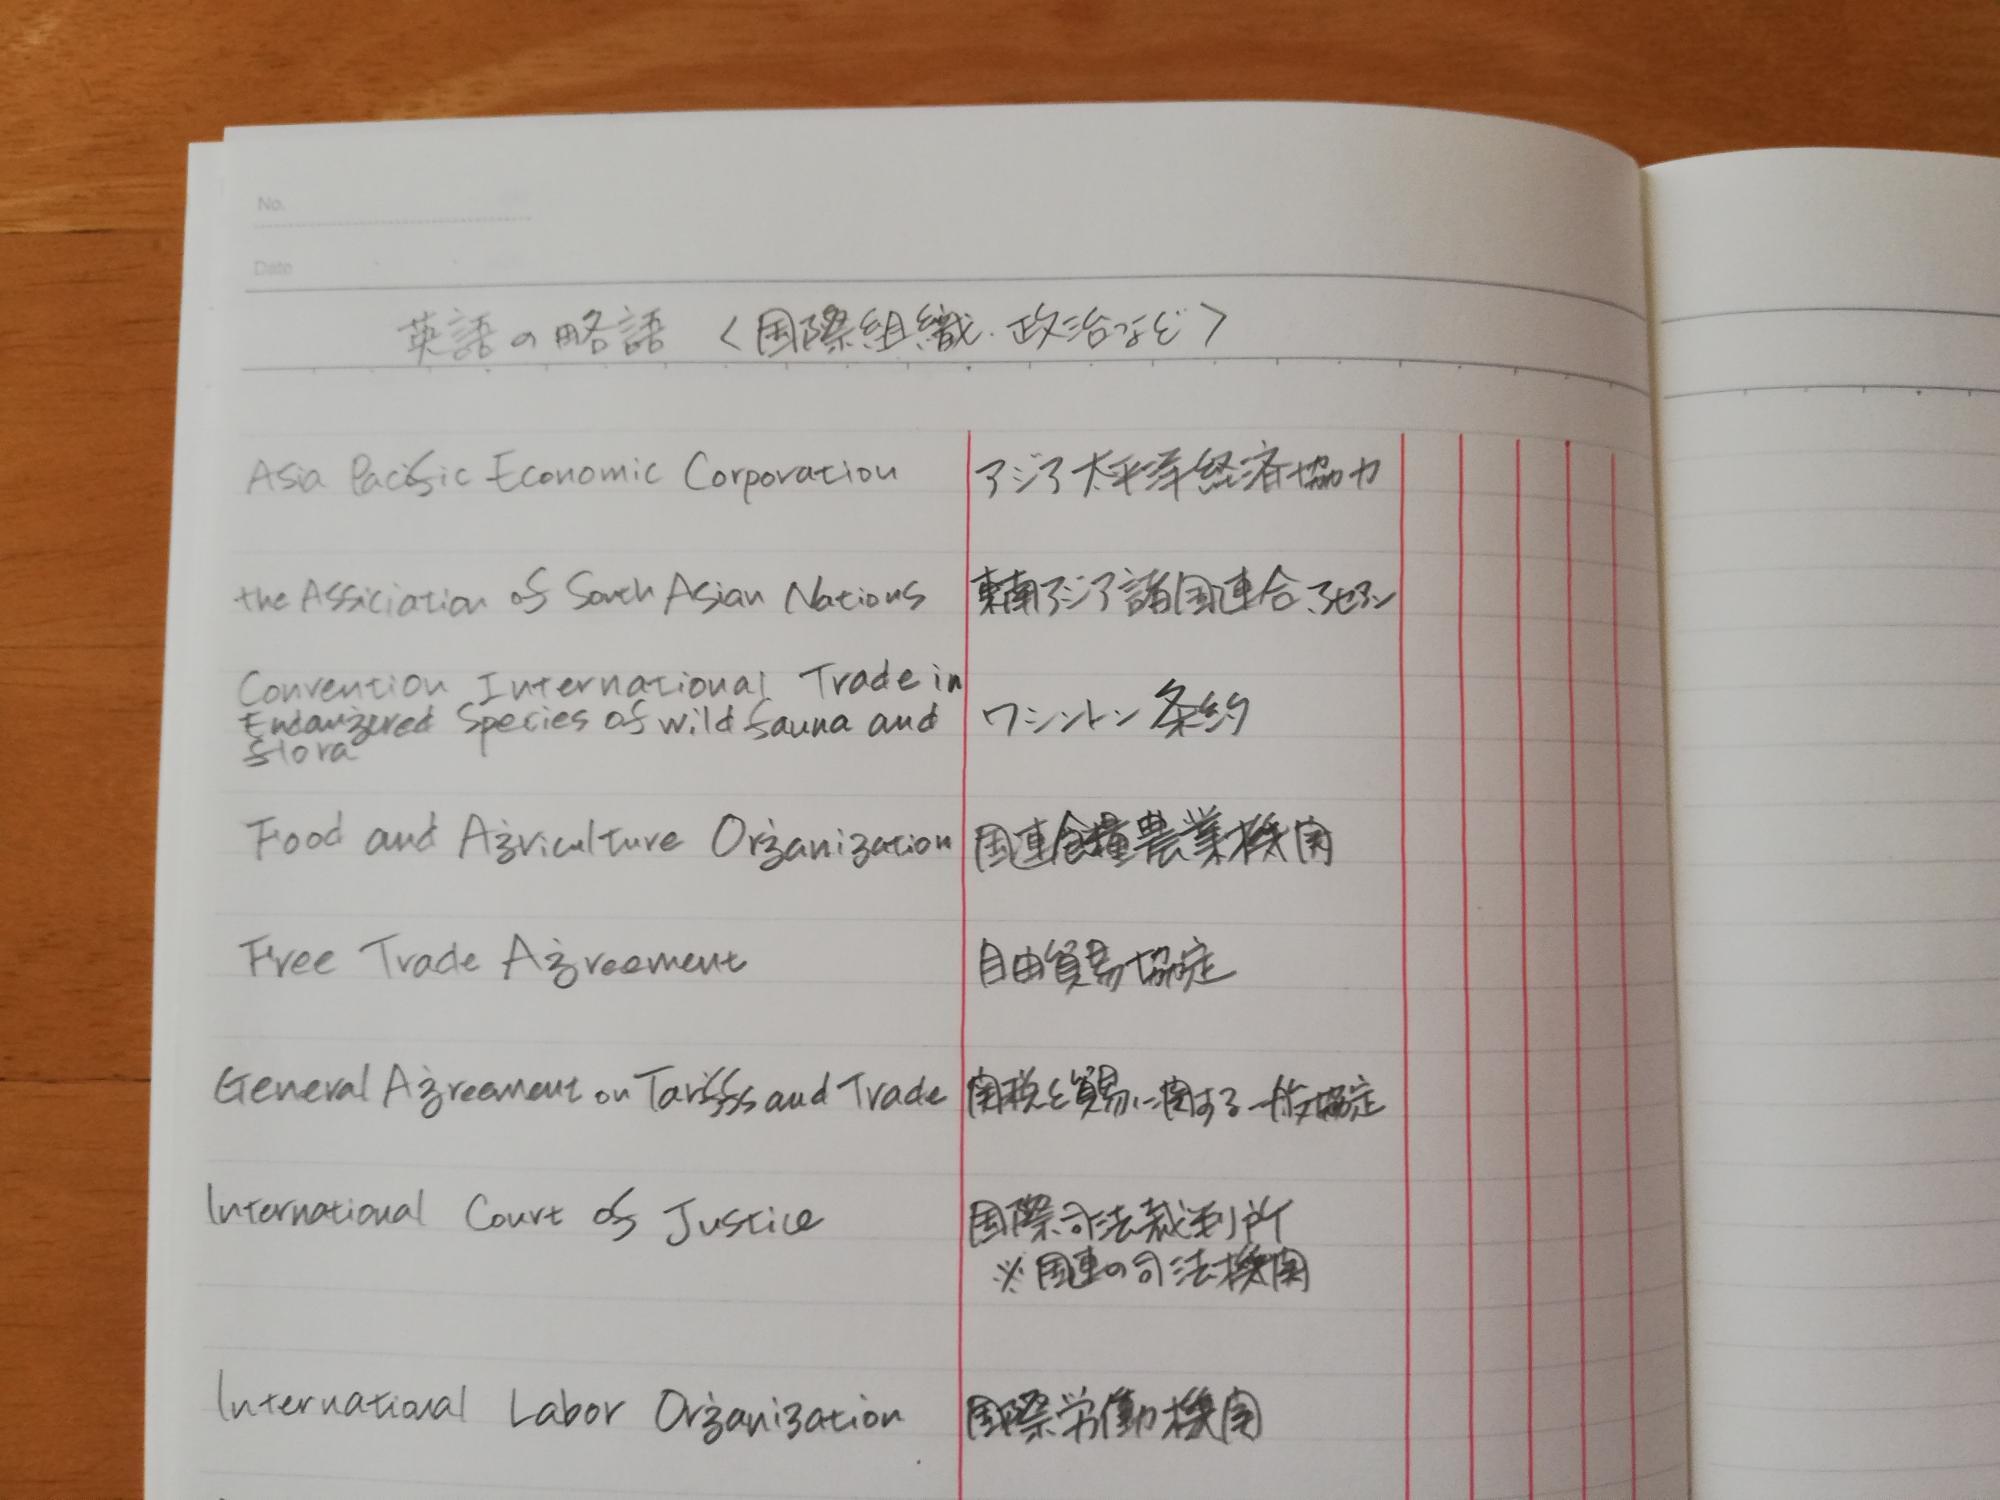 No.
Date
英語の略語 〈国際組織・政治など〉
Asia Pacific Economic Corporation アジア太平洋経済協力
the Assiciation of South Asian Nations 東南アジア諸国連合、アセアン
Convention International Trade in
Endangered Species of wild fauna and ワシントン条約
flora
Food and Agriculture Organization 国連食糧農業機関
Free Trade Agreement 自由貿易協定
General Agreement on Tariffs and Trade 関税と貿易に関する一般協定
International Court of Justice 国際司法裁判所
※国連の司法機関
International Labor Organization 国際労働機関